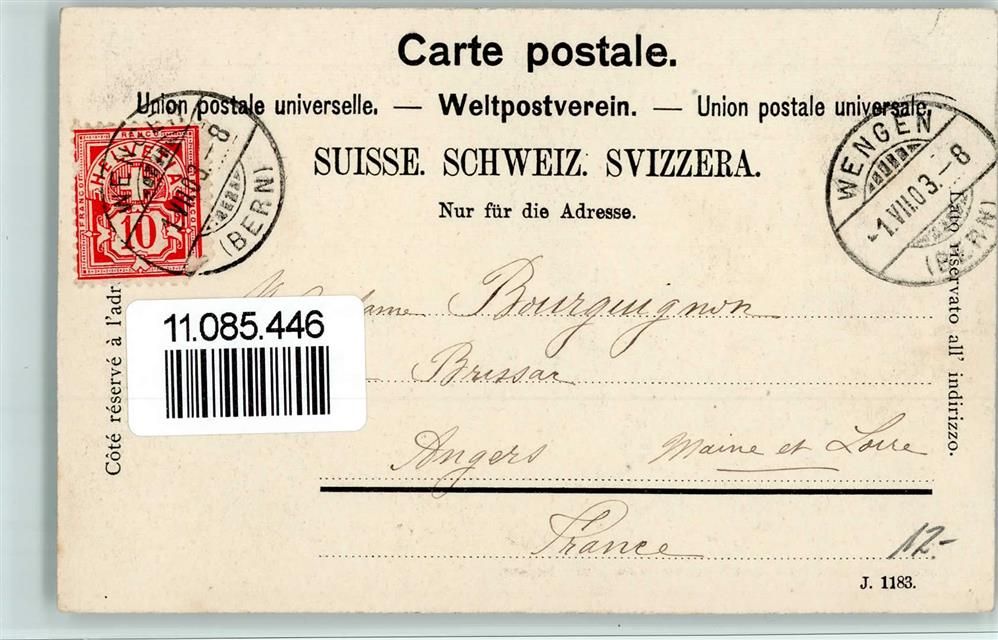 Carte postale.
Union postale universelle. — Weltpostverein. — Union postale universale.
SUISSE. SCHWEIZ. SVIZZERA.
Nur für die Adresse.
HELVETIA
FRANCO
10
(BERN)
WENGEN
-1.VIII.03.-8
(BERN)
Côté réservé à l'adr
Lato riservato all' indirizzo.
11.085.446
Madame Bourguignon
Brissac
Angers Maine et Loire
France
12.-
J. 1183.